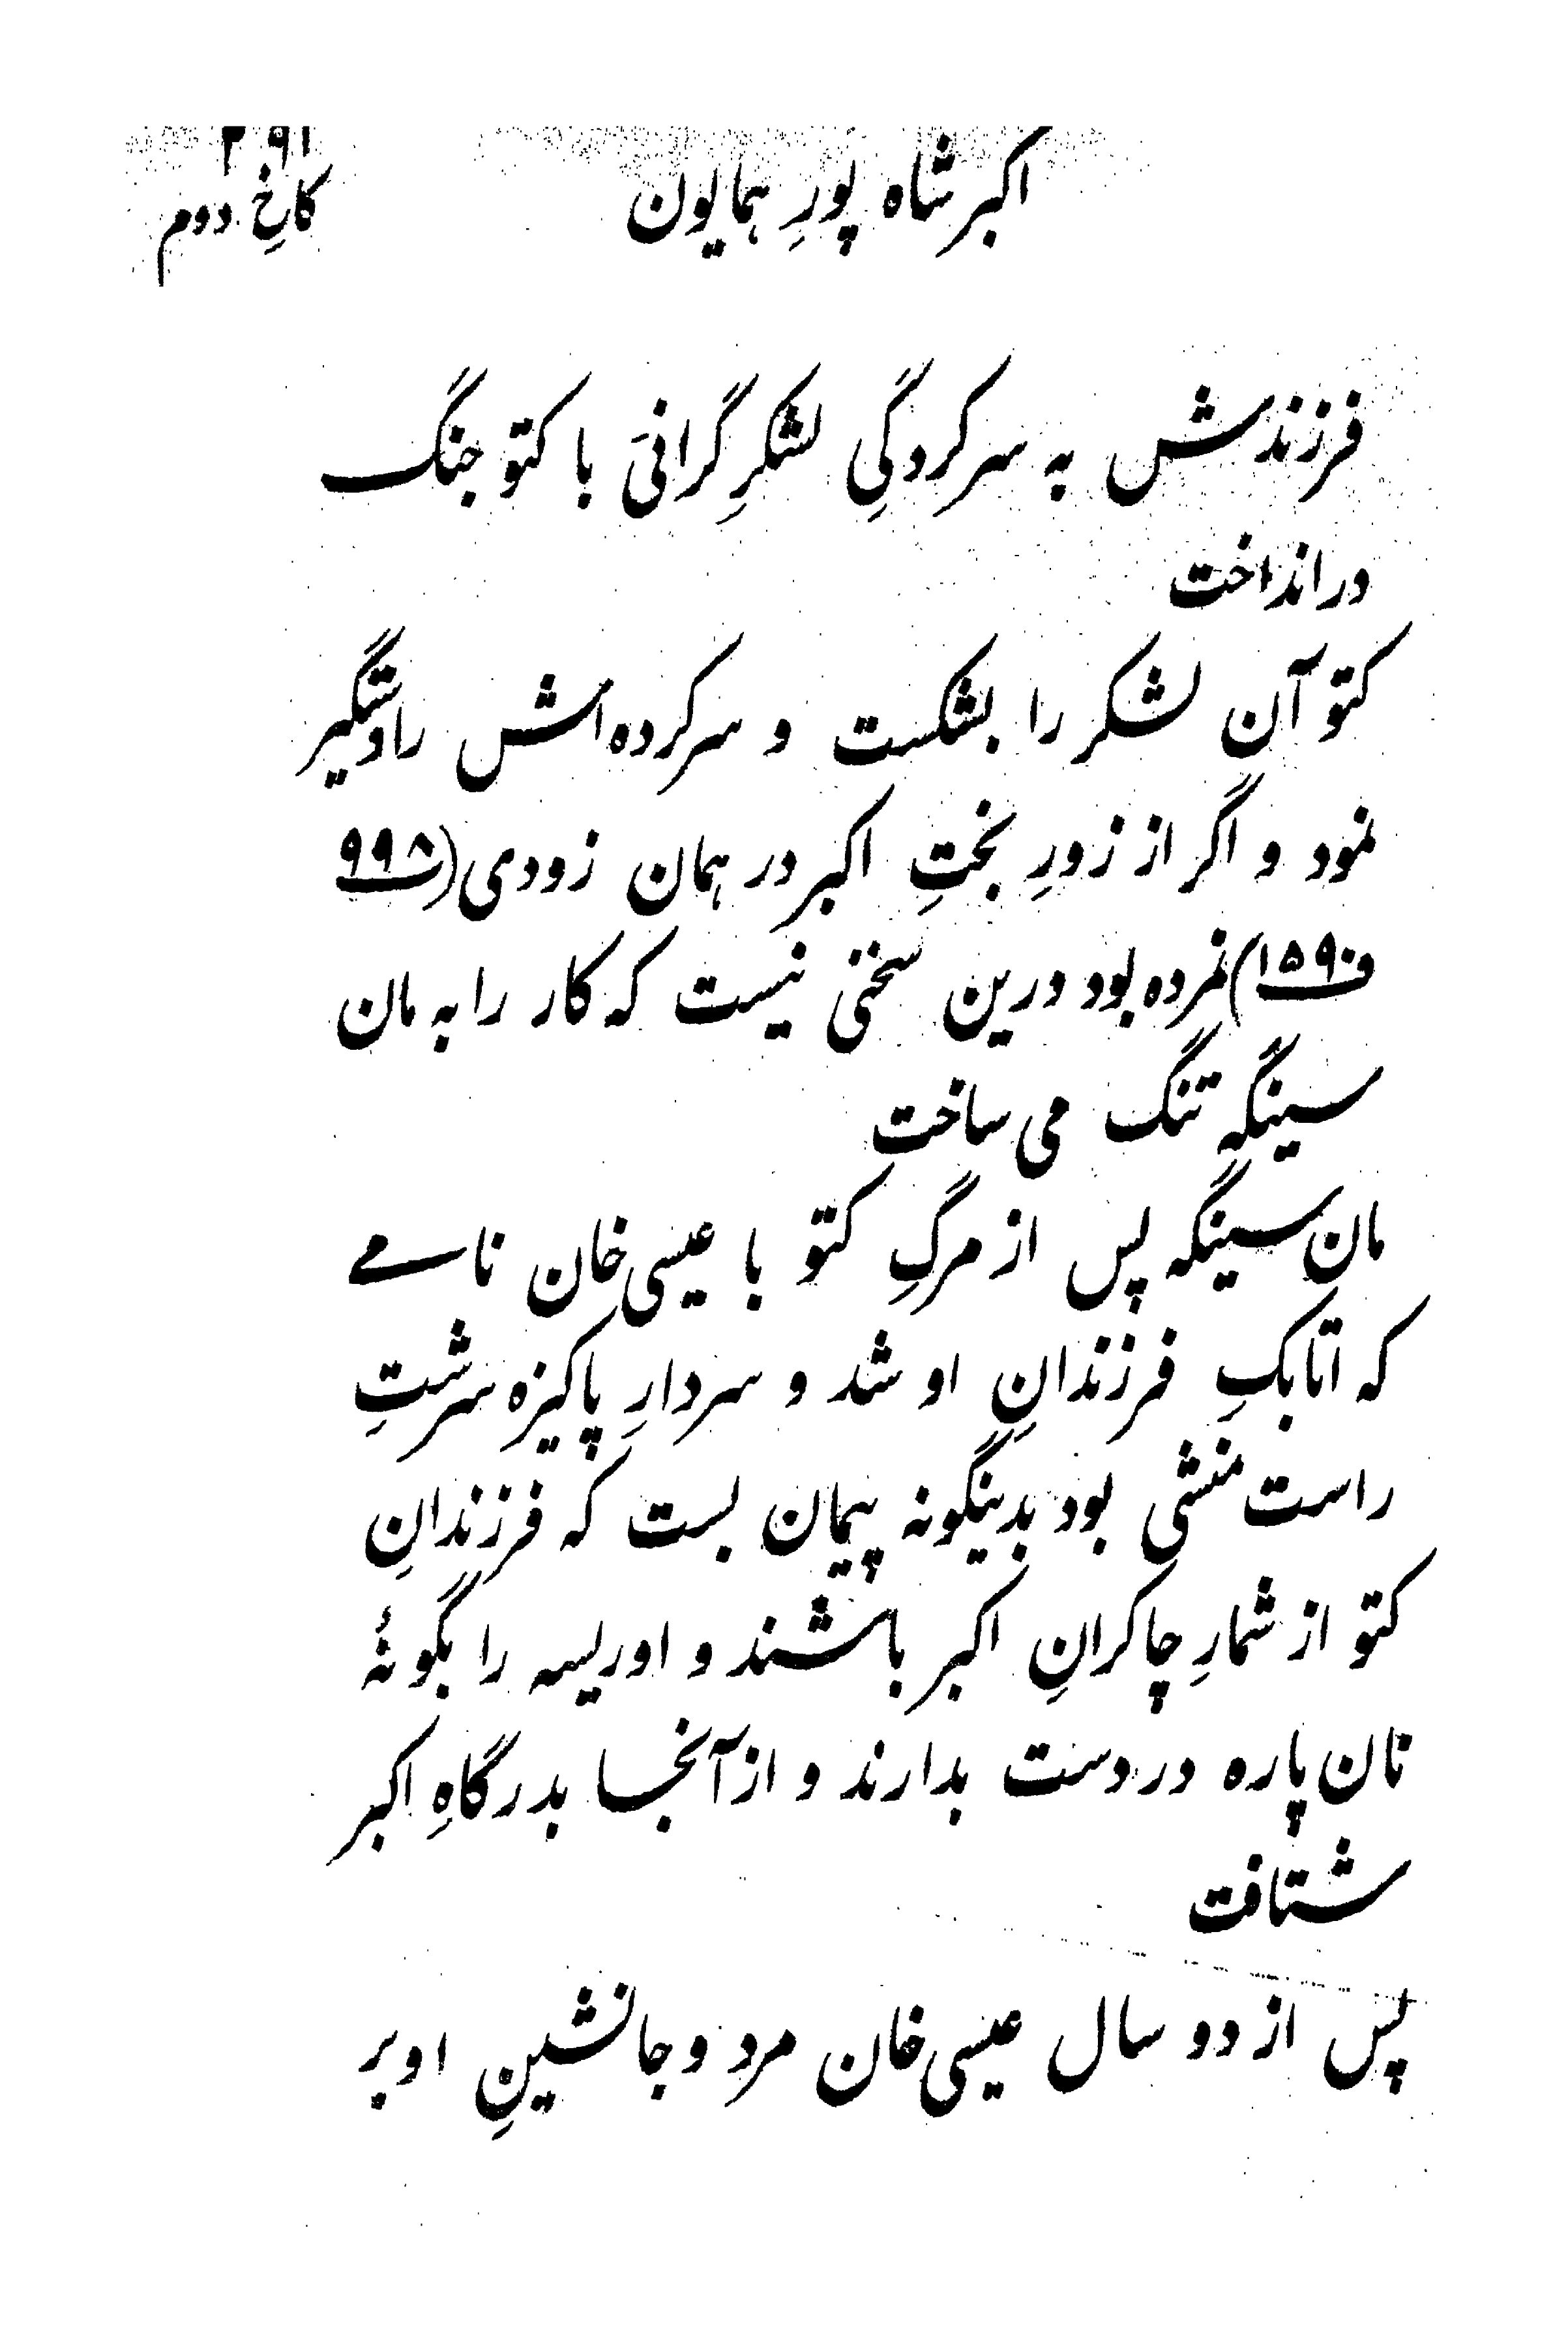 ۲۹۱
اکبر شاه پورِ همایون
کاخِ دوم
فرزندش به سرکردگیِ لشکرِ گرانیَ با کتو جنگ
در انداخت
کتو آن لشکر را بشکست و سرکرده اش را دستگیر
نمود و اگر از زورِ بختِ اکبر در همان زودی (۹۹۸
و ۱۵۹۰) نمرده بود درین سخنی نیست که کار را به مان
سینگه تنگ می ساخت
مان سینگه پس از مرگِ کتو با عیسی خان نامے
که اتابکِ فرزندانِ او شد و سردارِ پاکیزه سرشتِ
راست منشی بود بدینگونه پیمان بست که فرزندانِ
کتو از شمارِ چاکرانِ اکبر باشند و اوریسه را بگونهٔ
نان پاره در دست بدارند و از آنجا بدرگاهِ اکبر
شتافت
پس از دو سال عیسی خان مرد و جانشینِ او بر